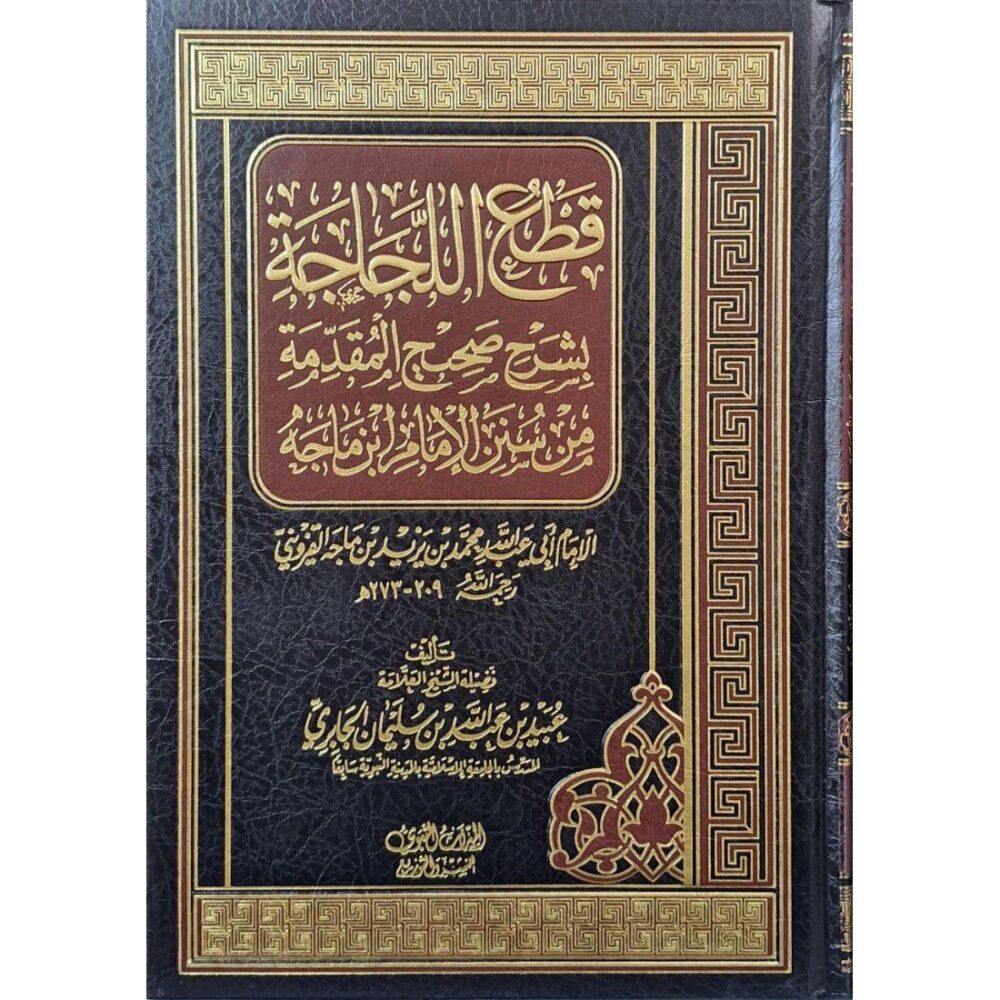 قَطْعُ اللَّجَاجَةِ
بِشَرْحِ صَحِيْحِ الْمُقَدِّمَةِ
مِنْ سُنَنِ الْإِمَامِ ابْنِ مَاجَهْ
الإمام أبي عبد الله محمد بن يزيد بن ماجه القزويني
رحمه الله ٢٠٩-٢٧٣هـ
تأليف
فضيلة الشيخ العلامة
عبيد بن عبد الله بن سليمان الجابري
المدرس بالجامعة الإسلامية بالمدينة النبوية سابقا
الميراث النبوي
للنشر والتوزيع